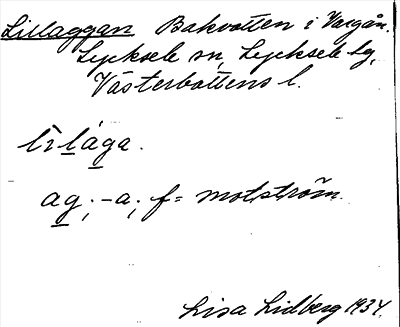 Lillaggan Bakvatten i Vargån.
Lycksele sn, Lycksele lg,
Västerbottens l.
lìlága.
ag; -a; f = motström.
Lisa Lidberg 1934.